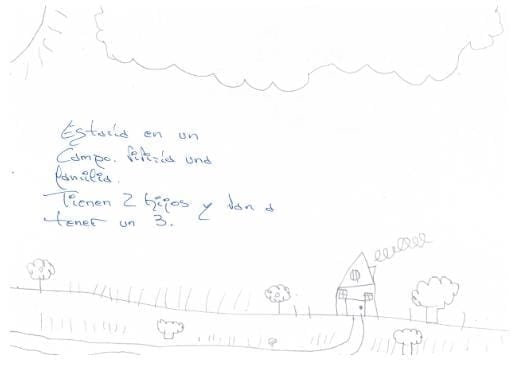 Estaría en un
Campo. Viviría una
familia.
Tienen 2 hijos y van a
tener un 3.